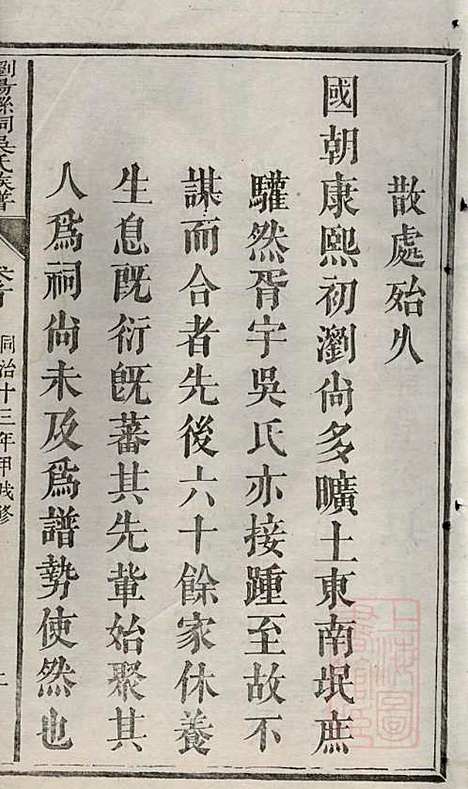 散處殆久
國朝康熙初瀏尚多曠土東南氓庶
驩然胥宇吳氏亦接踵至故不
謀而合者先後六十餘家休養
生息旣衍旣蕃其先輩始聚其
人爲祠尚未及爲譜勢使然也
瀏陽縣祠吳氏族譜
卷首
同治十三年甲戌修
上海圖書館藏